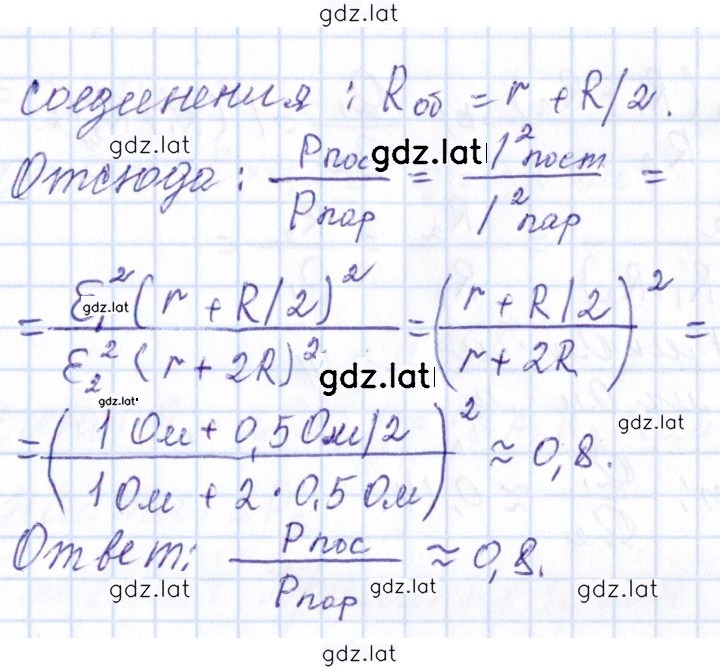 gdz.lat
соединения : Rоб = r + R/2.
gdz.lat
Отсюда : Pпос/Pпар = I²пост/I²пар =
gdz.lat
= ℰ₁²(r + R/2)²/ℰ₂²(r + 2R)² = (r + R/2 / r + 2R)² =
gdz.lat
gdz.lat
gdz.lat
gdz.lat
= (1 Ом + 0,5 Ом/2 / 1 Ом + 2·0,5 Ом)² ≈ 0,8.
Ответ: Pпос/Pпар ≈ 0,8.
gdz.lat gdz.lat gdz.lat
gdz.lat